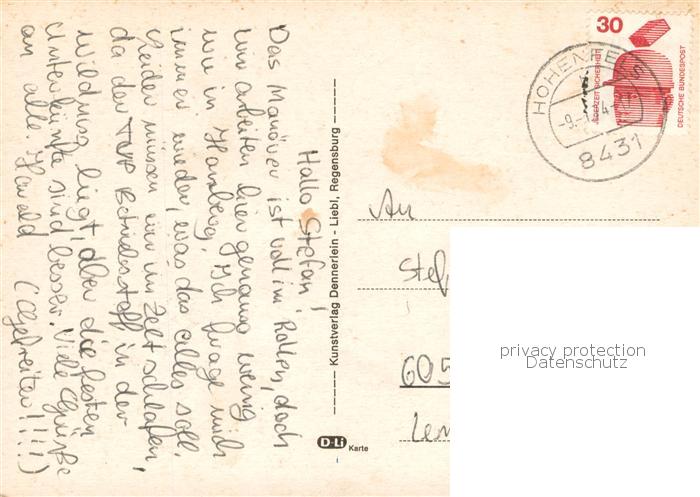 Hallo Stefan!
Das Manöver ist voll im Rollen, doch
wir arbeiten hier genauso wenig
wie in Ich frage mich
immer wieder, was das alles soll.
Leider müssen wir im Zelt schlafen,
da der Betriebsstoff in der
Wildnis liegt, aber die festen
Unterkünfte sind besser. Viele Grüße
an alle. Harald (Gefreiter!!!!)
Kunstverlag Dennerlein - Liebl, Regensburg
D-Li Karte
30
JEDERZEIT SICHERHEIT
DEUTSCHE BUNDESPOST
HOHENFELS
8431
An
Stef
605
privacy protection
Datenschutz